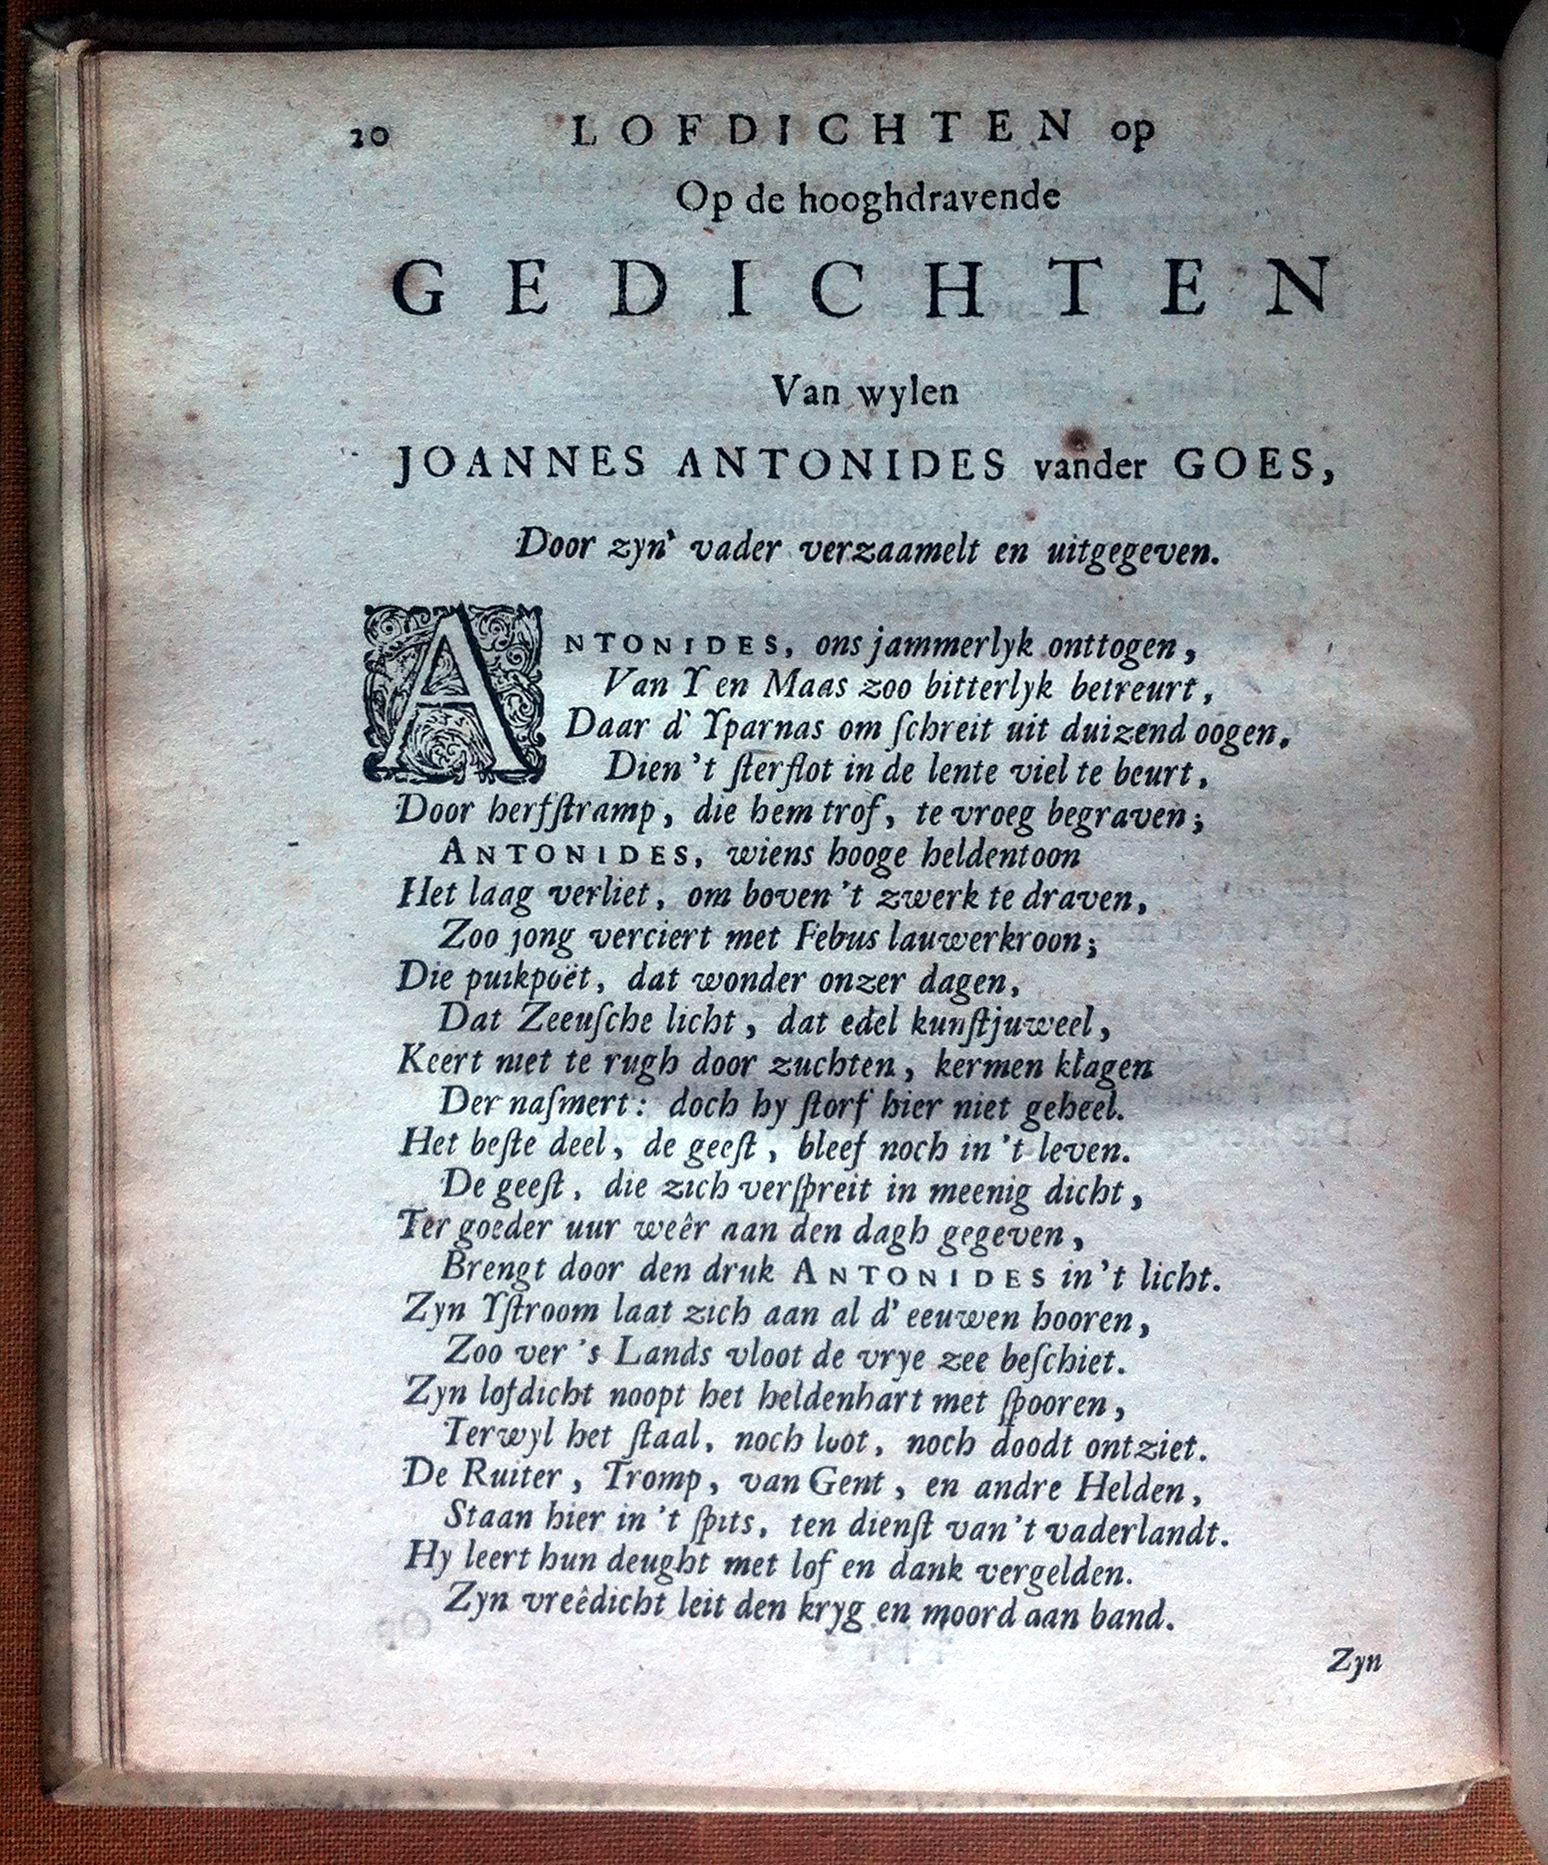 20 LOFDICHTEN op
Op de hooghdravende
GEDICHTEN
Van wylen
JOANNES ANTONIDES vander GOES,
Door zyn' vader verzaamelt en uitgegeven.
ANTONIDES, ons jammerlyk onttogen,
Van Y en Maas zoo bitterlyk betreurt,
Daar d' Yparnas om ſchreit uit duizend oogen.
Dien 't ſterflot in de lente viel te beurt,
Door herfſtramp, die hem trof, te vroeg begraven;
ANTONIDES, wiens hooge heldentoon
Het laag verliet, om boven 't zwerk te draven,
Zoo jong verciert met Febus lauwerkroon;
Die puikpoët, dat wonder onzer dagen,
Dat Zeeuſche licht, dat edel kunſtjuweel,
Keert niet te rugh door zuchten, kermen klagen
Der naſmert: doch hy ſtorf hier niet geheel.
Het beſte deel, de geeſt, bleef noch in 't leven.
De geeſt, die zich verſpreit in meenig dicht,
Ter goeder uur weêr aan den dagh gegeven,
Brengt door den druk ANTONIDES in 't licht.
Zyn Yſtroom laat zich aan al d' eeuwen hooren,
Zoo ver 's Lands vloot de vrye zee beſchiet.
Zyn lofdicht noopt het heldenhart met ſpooren,
Terwyl het ſtaal, noch loot, noch doodt ontziet.
De Ruiter, Tromp, van Gent, en andre Helden,
Staan hier in 't ſpits, ten dienſt van 't vaderlandt.
Hy leert hun deught met lof en dank vergelden.
Zyn vreêdicht leit den kryg en moord aan band.
Zyn